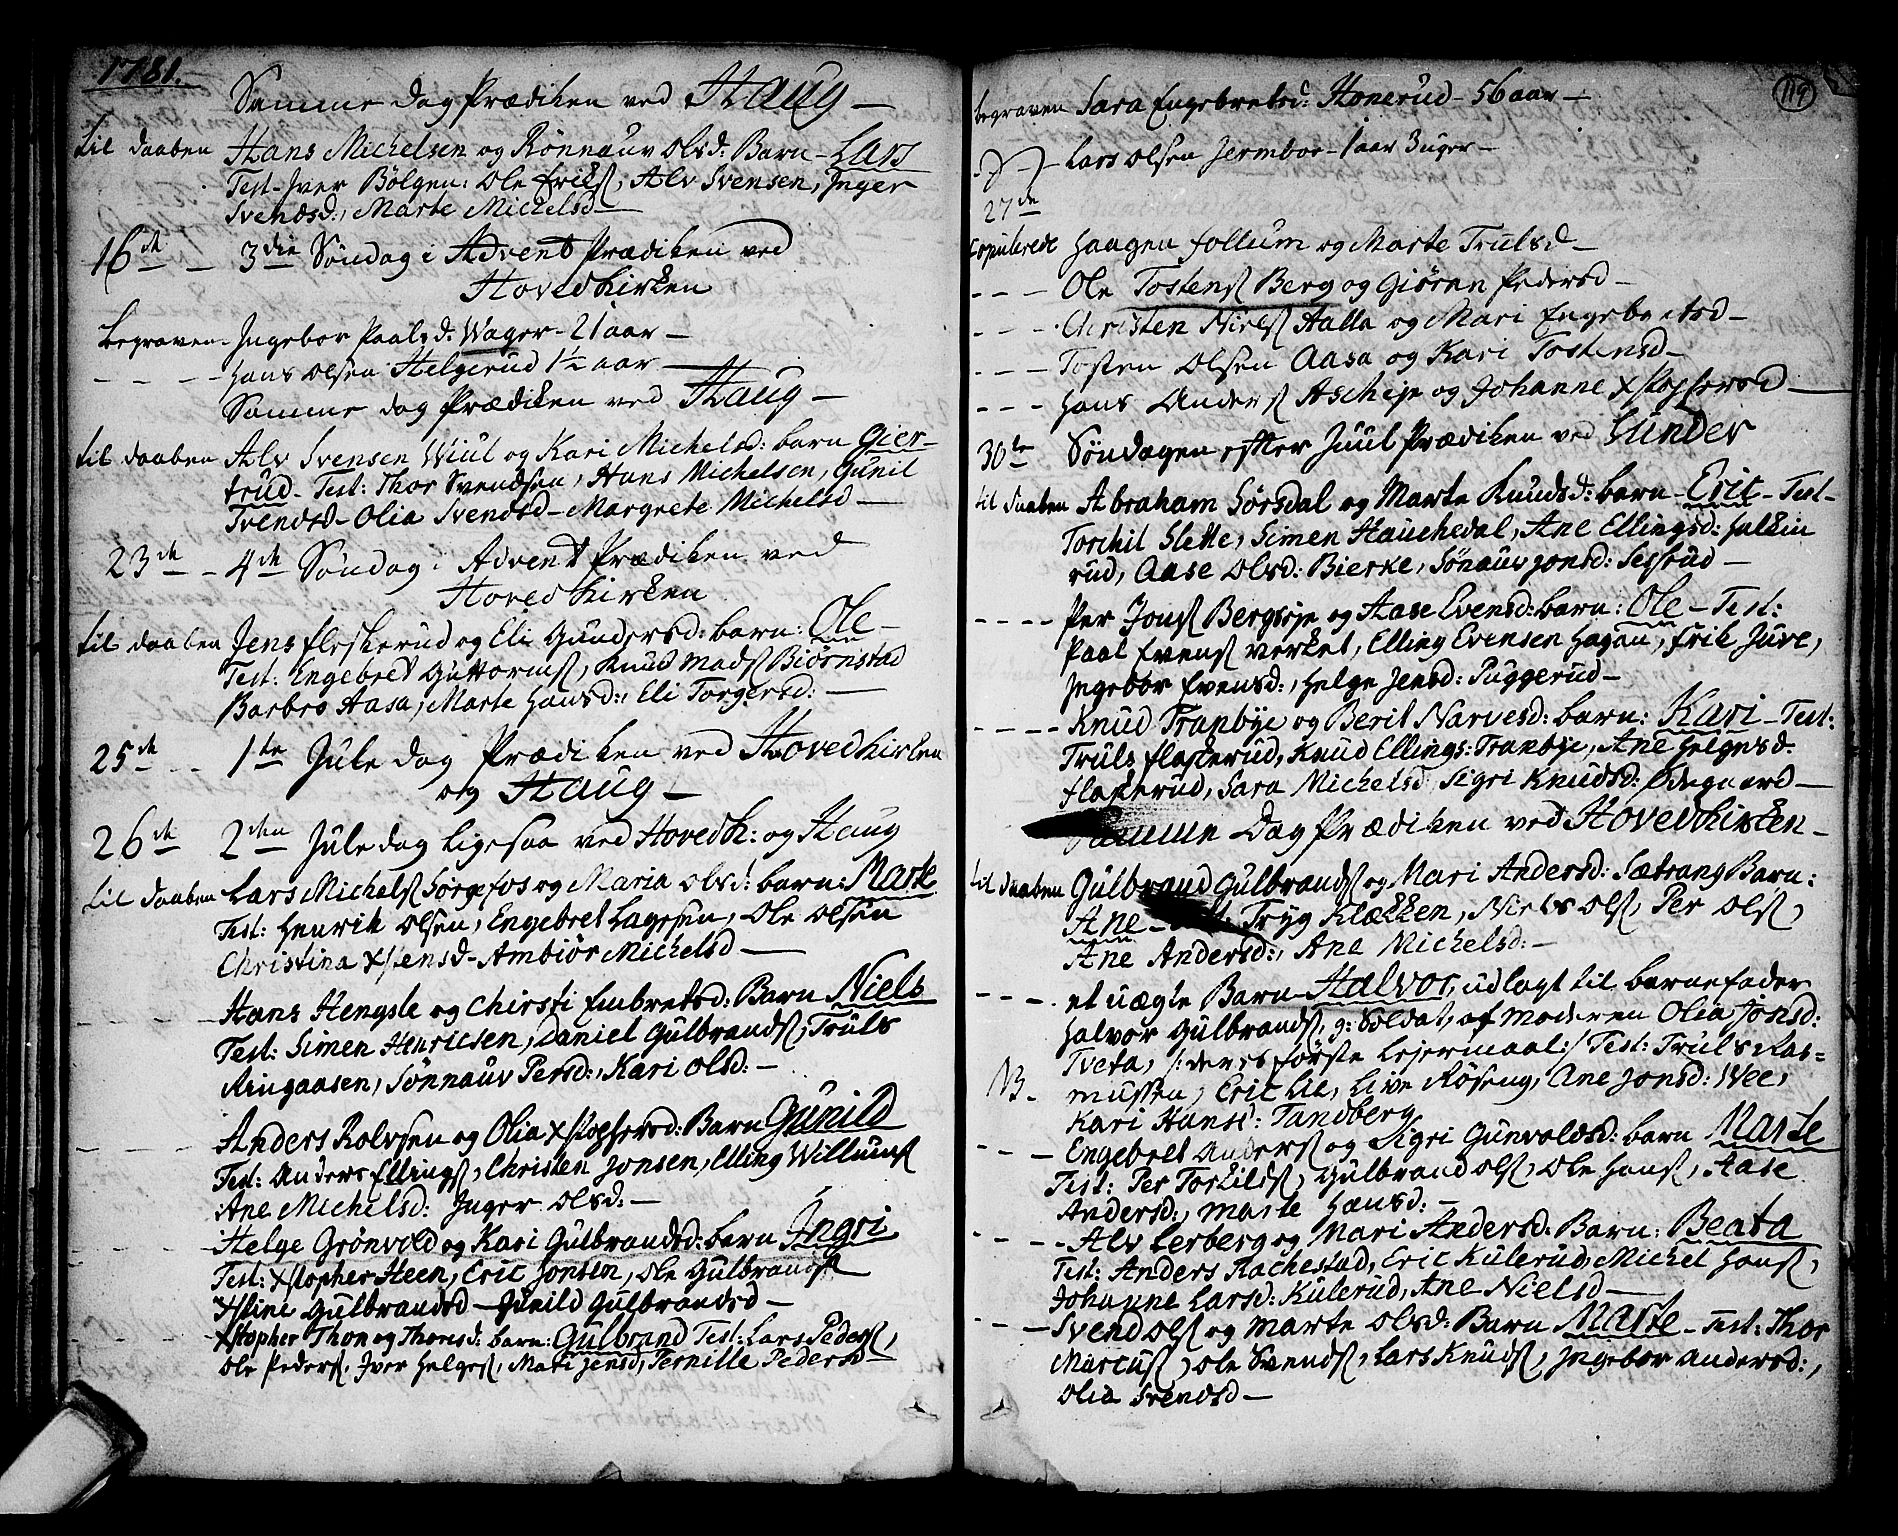 1781.
Samme dag Prædiken ved Haug —
til daaben Hans Michelsen og Rönnauv Olsd: Barn — Lars
Test — Iver Bölgen: Ole Eriks, Alv Svensen, Inger
Svendsd:, Marte Michelsd —
16de — 3die Söndag i Advent Prædiken ved
Hovedkirken
begraven — Ingebor Paalsd: Wager — 21 aar —
- - - - Hans Olsen Helgerud 1½ aar —
Samme dag Prædiken ved Haug —
til daaben Alv Svensen Wiul og Kari Michelsd: barn Gier-
trud — Test: Thor Svendsen, Hans Michelsen, Gunil
Svendsd — Olia Svendsd — Margrete Michelsd —
23de — 4de Söndag i Advent Prædiken ved
Hovedkirken
til daaben Jens fleskerud og Eli Gundersd: barn: Ole —
Test: Engebred Guttorms, Knud Mads Biörnstad
Barbro Aasa, Marte Hansd:, Eli Torgersd: —
25de - - 1ste Jule dag Prædiken ved Hovedkirken
og Haug —
26de 2den Jule dag ligesaa ved Hovedk: og Haug
til daaben Lars Michels Sörgefos og Maria Olsd: barn: Marte
Test: Henrik Olsen, Engebret Lagesen, Ole Olsen
Christina Xstensd — Ambiör Michelsd —
- - - Hans Hengsle og Chirsti Embretsd: Barn Niels
Test: Simen Henricsen, Daniel Gulbrands, Truls
Ringaasen, Sönnauv Persd:, Kari Olsd: —
- - - Anders Rolvsen og Olia Xstophersd: Barn Gunild
Test: Anders Ellings, Christen Jonsen, Elling Willums
Ane Michelsd: Inger Olsd: —
- - - Helge Grönvold og Kari Gulbrandsd: barn Ingri
Test: Xstopher Heen, Eric Jonsen, Ole Gulbrands
Xstine Gulbrandsd — Gunild Gulbrandsd —
- - - Xstopher Thon og Thoresd: barn: Gulbrand Test: Lars Peders,
Ole Peders. Iver Helges, Mari Jensd, Pernille Pedersd —
119
begraven Sara Engebretsd: Honerud — 56 aar —
Lars Olsen Jermboe — 1 aar 3 uger —
27de
Copulerede Haagen follum og Marte Trulsd —
- - - Ole Tostens Berg og Giören Pedersd —
- - - Christen Niels Aalla og Mari Engebretsd —
- - - Tosten Olsen Aasa og Kari Tostensd —
- - - Hans Anders Ascheje og Johanne Xstophersd —
30te Söndagen efter Juul Prædiken ved Lunder
til daaben Abraham Sörsdal og Marte Knudsd: barn — Eric — Test —
Torchil Slette, Simen Hauchedal, Ane Ellingsd:
rud, Aase Olsd: Bierke, Sönauv Jonsd: Sesserud —
- - - - Per Jons Bergsje og Aase Evensd: barn: Ole — Test:
Paal Evens verket, Elling Evensen Hagan, Erik Juve,
Ingebor Evensd:, Helge Jensd: Puggerud —
- - - - Knud Tranbye og Berit Narvesd: barn: Kari — Test:
Truls flaskerud, Knud Ellings: Tranbye, Ane Helgesd.
flaskerud, Sara Michelsd, Sigri Knudsd: Ödegaard —
Samme Dag Prædiken ved Hovedkirken —
til daaben Gulbrand Gulbrands og Mari Andersd: Sætrang Barn:
Ane — Tryg Klækken, Niels Ols, Per Ols,
Ane Andersd:, Ane Michelsd: —
- - - . et uægte Barn — Halvor, udlagt til barnefader
Halvor Gulbrands, g: Soldat, af moderen Olia Jonsd:
Tveta, /: deres förste Lejermaal:/ Test: Truls Ras=
NB. mussen, Eric Lie, Live Röseng, Ane Jonsd: Wee,
Kari Hansd: Tandberg
- - - Engebret Anders og Sigri Gunvoldsd: barn Marte
Test: Per Torkilds, Gulbrand Ols, Ole Hans, Aase
Andersd:, Marte Hansd: —
- - - - Alv Lerberg og Mari Andersd: Barn: Beata
Test: Anders Rachestad, Eric Kulerud, Michel Hans,
Johanne Larsd: Kulerud, Ane Nielsd —
- - - Svend Ols og Marte Olsd: Barn Marte — Test: Thor
Marcus, Ole Svends, Lars Knuds, Ingebor Andersd:,
Olia Svendsd —